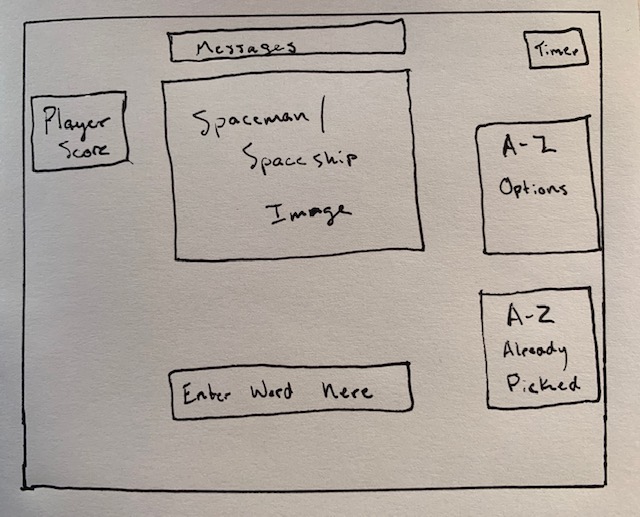 Messages
Timer
Player
Score
Spaceman /
Spaceship
Image
A-Z
Options
A-Z
Already
Picked
Enter Word Here